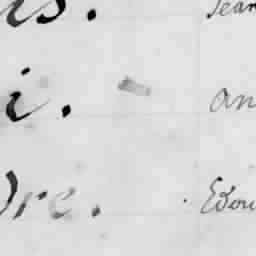 is. Jean
i. an
dre. Edou